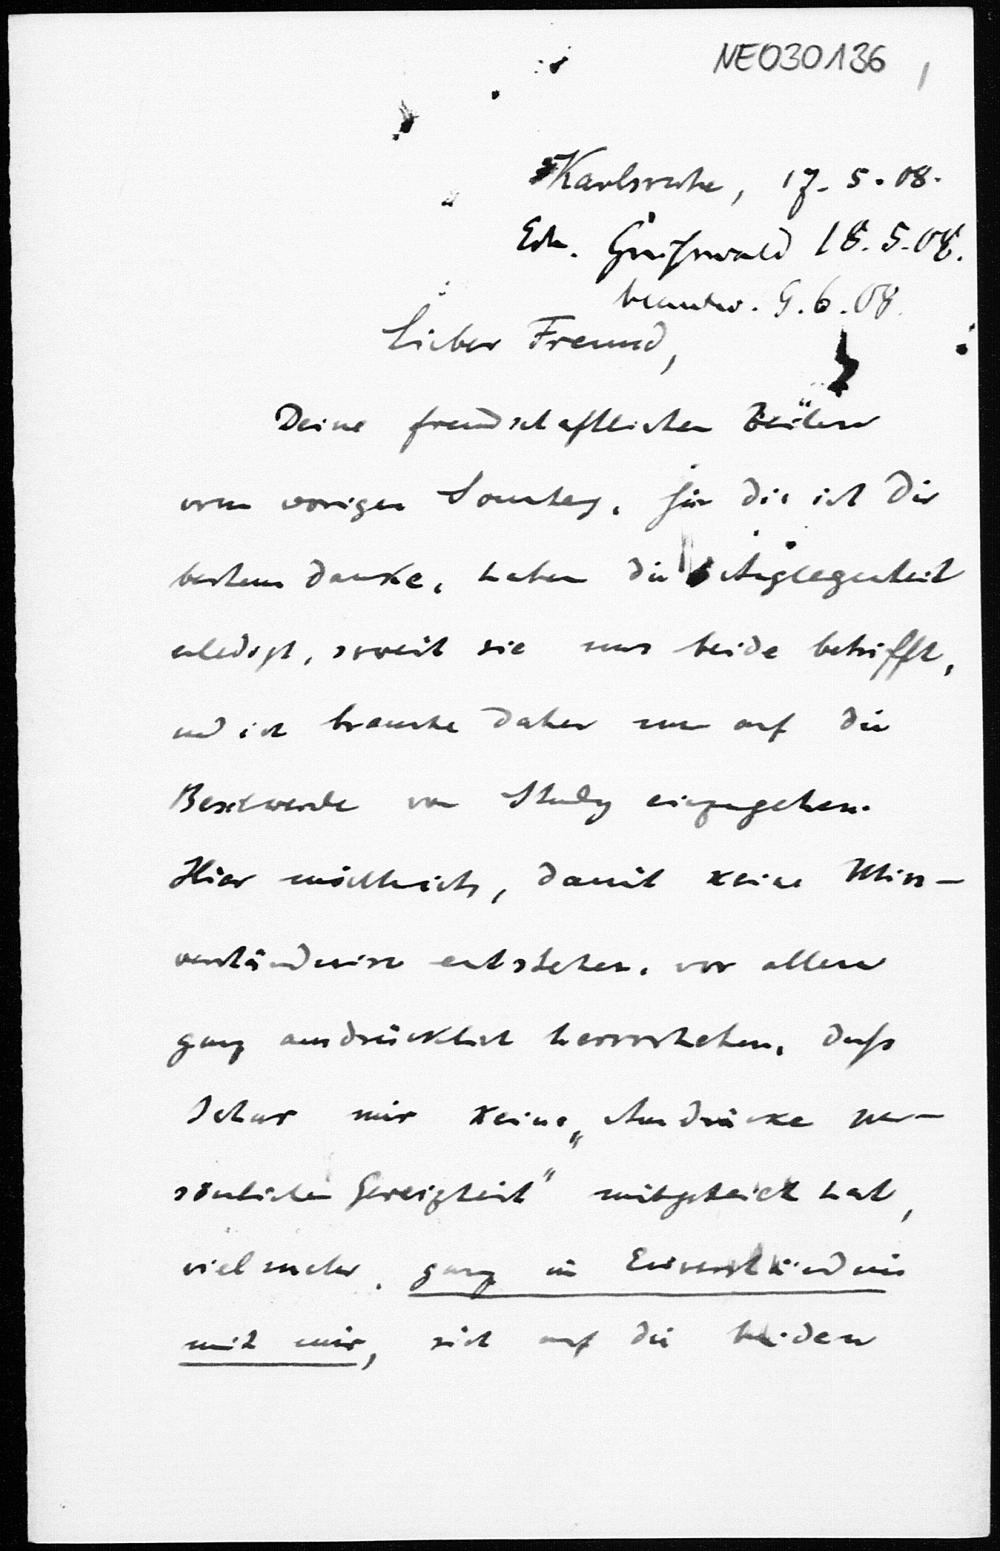 NE030136
Karlsruhe, 17. 5. 08.
Erh. Greifswald 18. 5. 08.
beantw. 9. 6. 08.
Lieber Freund,
Deine freundschaftlichen Zeilen
vom vorigen Sonntag, für die ich Dir
bestens danke, haben die Angelegenheit
erledigt, soweit sie uns beide betrifft,
und ich brauche daher nur auf die
Beschwerde von Study einzugehen.
Hier möchte ich, damit keine Miss-
verständnisse entstehen, vor allem
ganz ausdrücklich hervorheben, dass
Schur mir keine „Ausdrücke per-
sönlicher Gereiztheit“ mitgeteilt hat,
vielmehr, ganz im Einverständnis
mit mir, sich auf die beiden